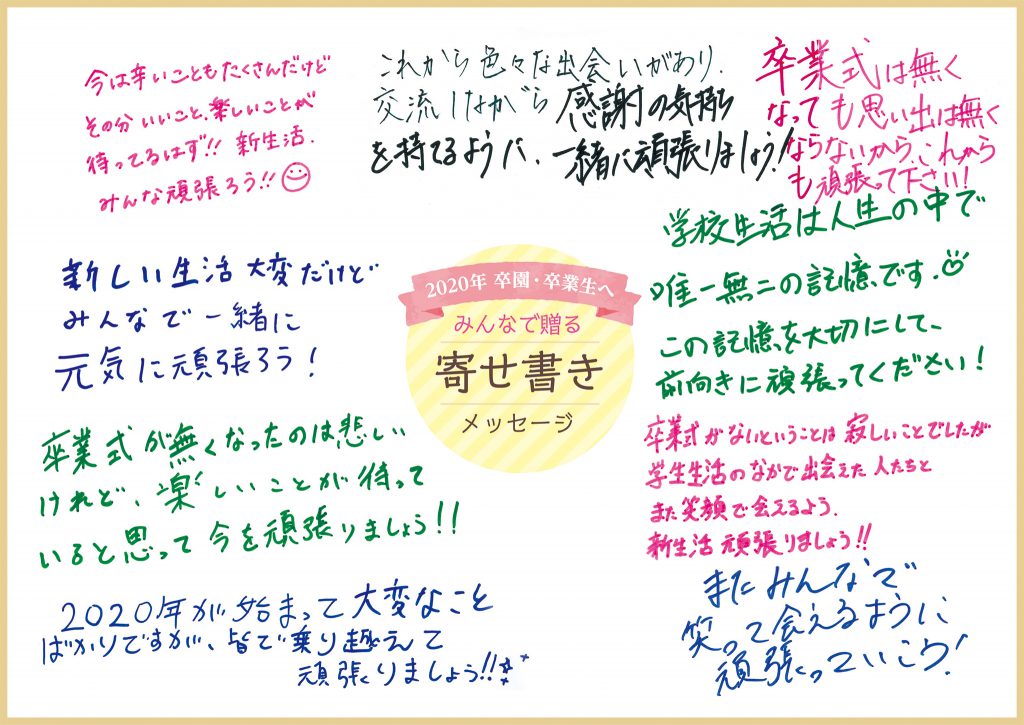 今は辛いこともたくさんだけど
その分いいこと、楽しいことが
待ってるはず!! 新生活、
みんな頑張ろう!!
これから色々な出会いがあり、
交流しながら感謝の気持ち
を持てるように、一緒に頑張りましょう!
卒業式は無く
なっても思い出は無く
ならないから、これから
も頑張って下さい!
学校生活は人生の中で
唯一無二の記憶です。
この記憶を大切にして、
前向きに頑張ってください!
新しい生活大変だけど
みんなで一緒に
元気に頑張ろう!
2020年 卒園・卒業生へ
みんなで贈る
寄せ書き
メッセージ
卒業式が無くなったのは悲しい
けれど、楽しいことが待って
いると思って今を頑張りましょう!!
卒業式がないということは寂しいことでしたが
学生生活のなかで出会えた人たちと
また笑顔で会えるよう、
新生活頑張りましょう!!
2020年が始まって大変なこと
ばかりですが、皆で乗り越えて
頑張りましょう!!
またみんなで
笑って会えるように
頑張っていこう!